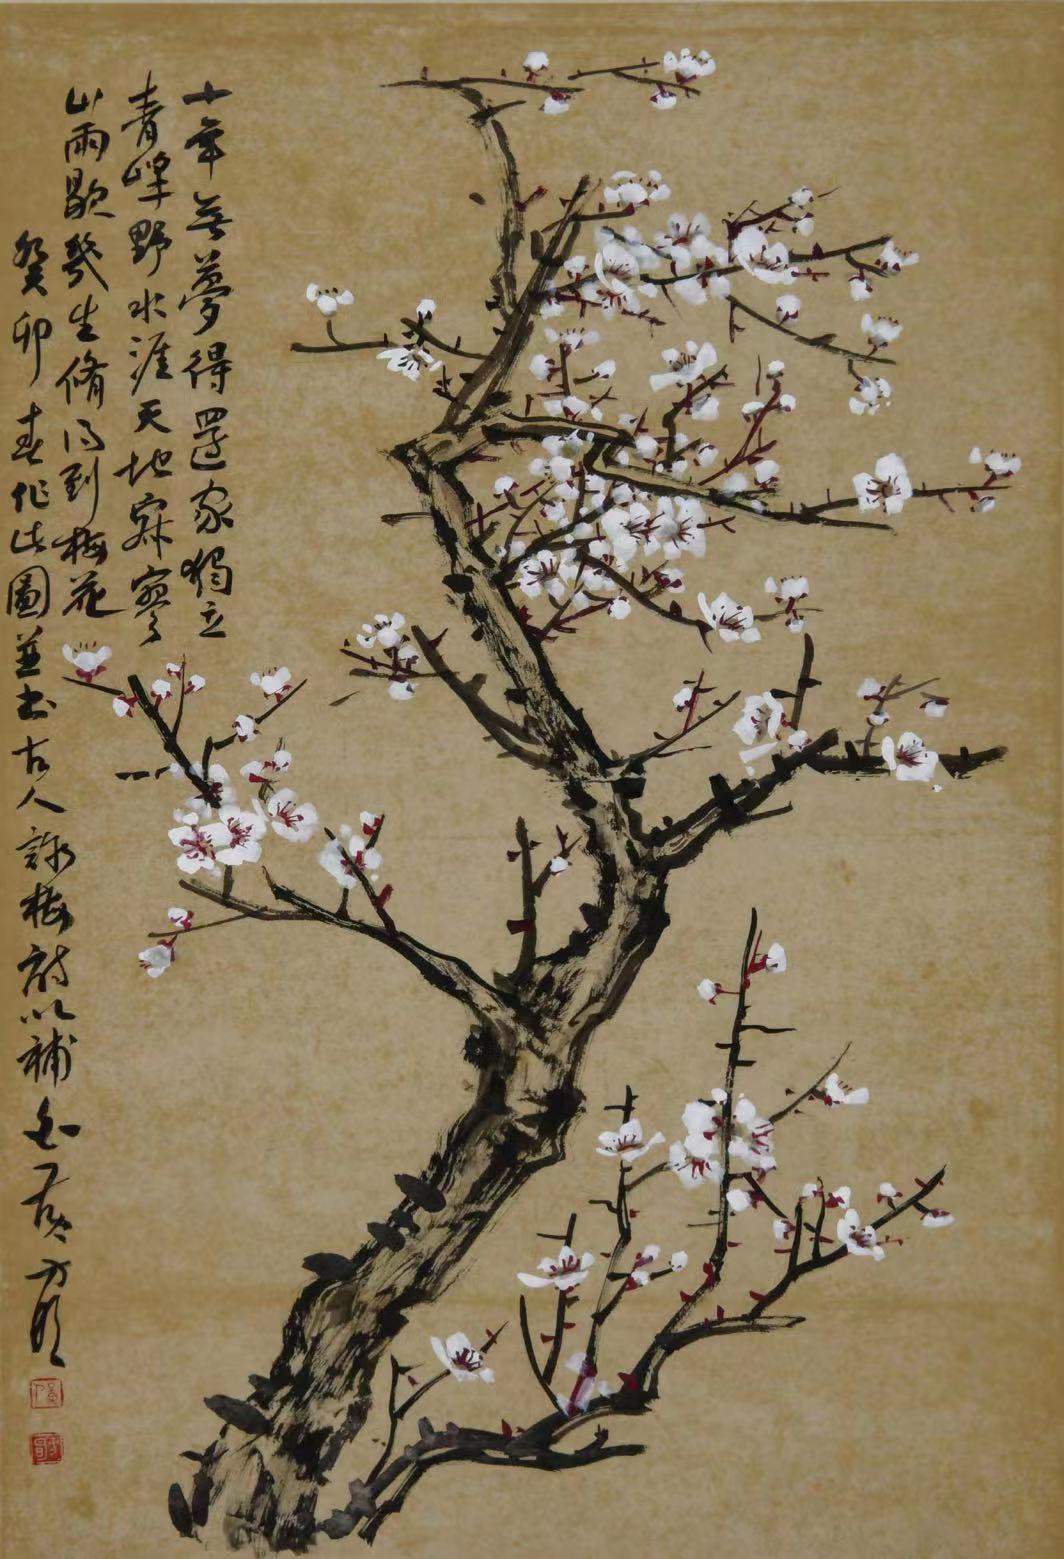 十年無夢得還家獨立
青峰野水涯天地寂寥
山雨歇幾生脩得到梅花
癸卯春作此圖並書古人詠梅詩以補白